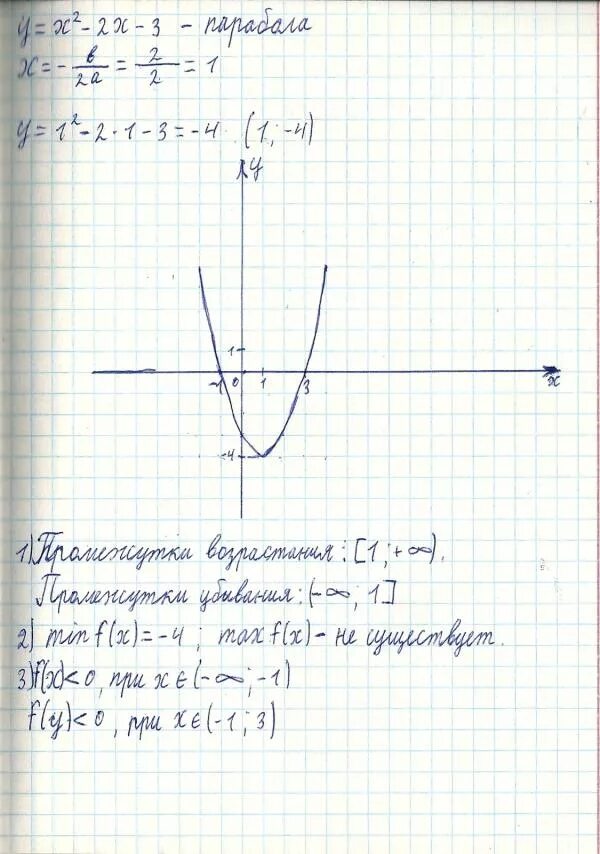 y = x² - 2x - 3 - парабола
x = - в/2а = 2/2 = 1
y = 1² - 2 · 1 - 3 = -4. (1; -4)
y
1
-1 0 1 3 x
-4
1) Промежутки возрастания: [1; +∞).
Промежутки убывания: (-∞; 1]
2) min f(x) = -4; max f(x) - не существует.
3) f(x) < 0, при x ∈ (-∞; -1)
f(y) < 0, при x ∈ (-1; 3)